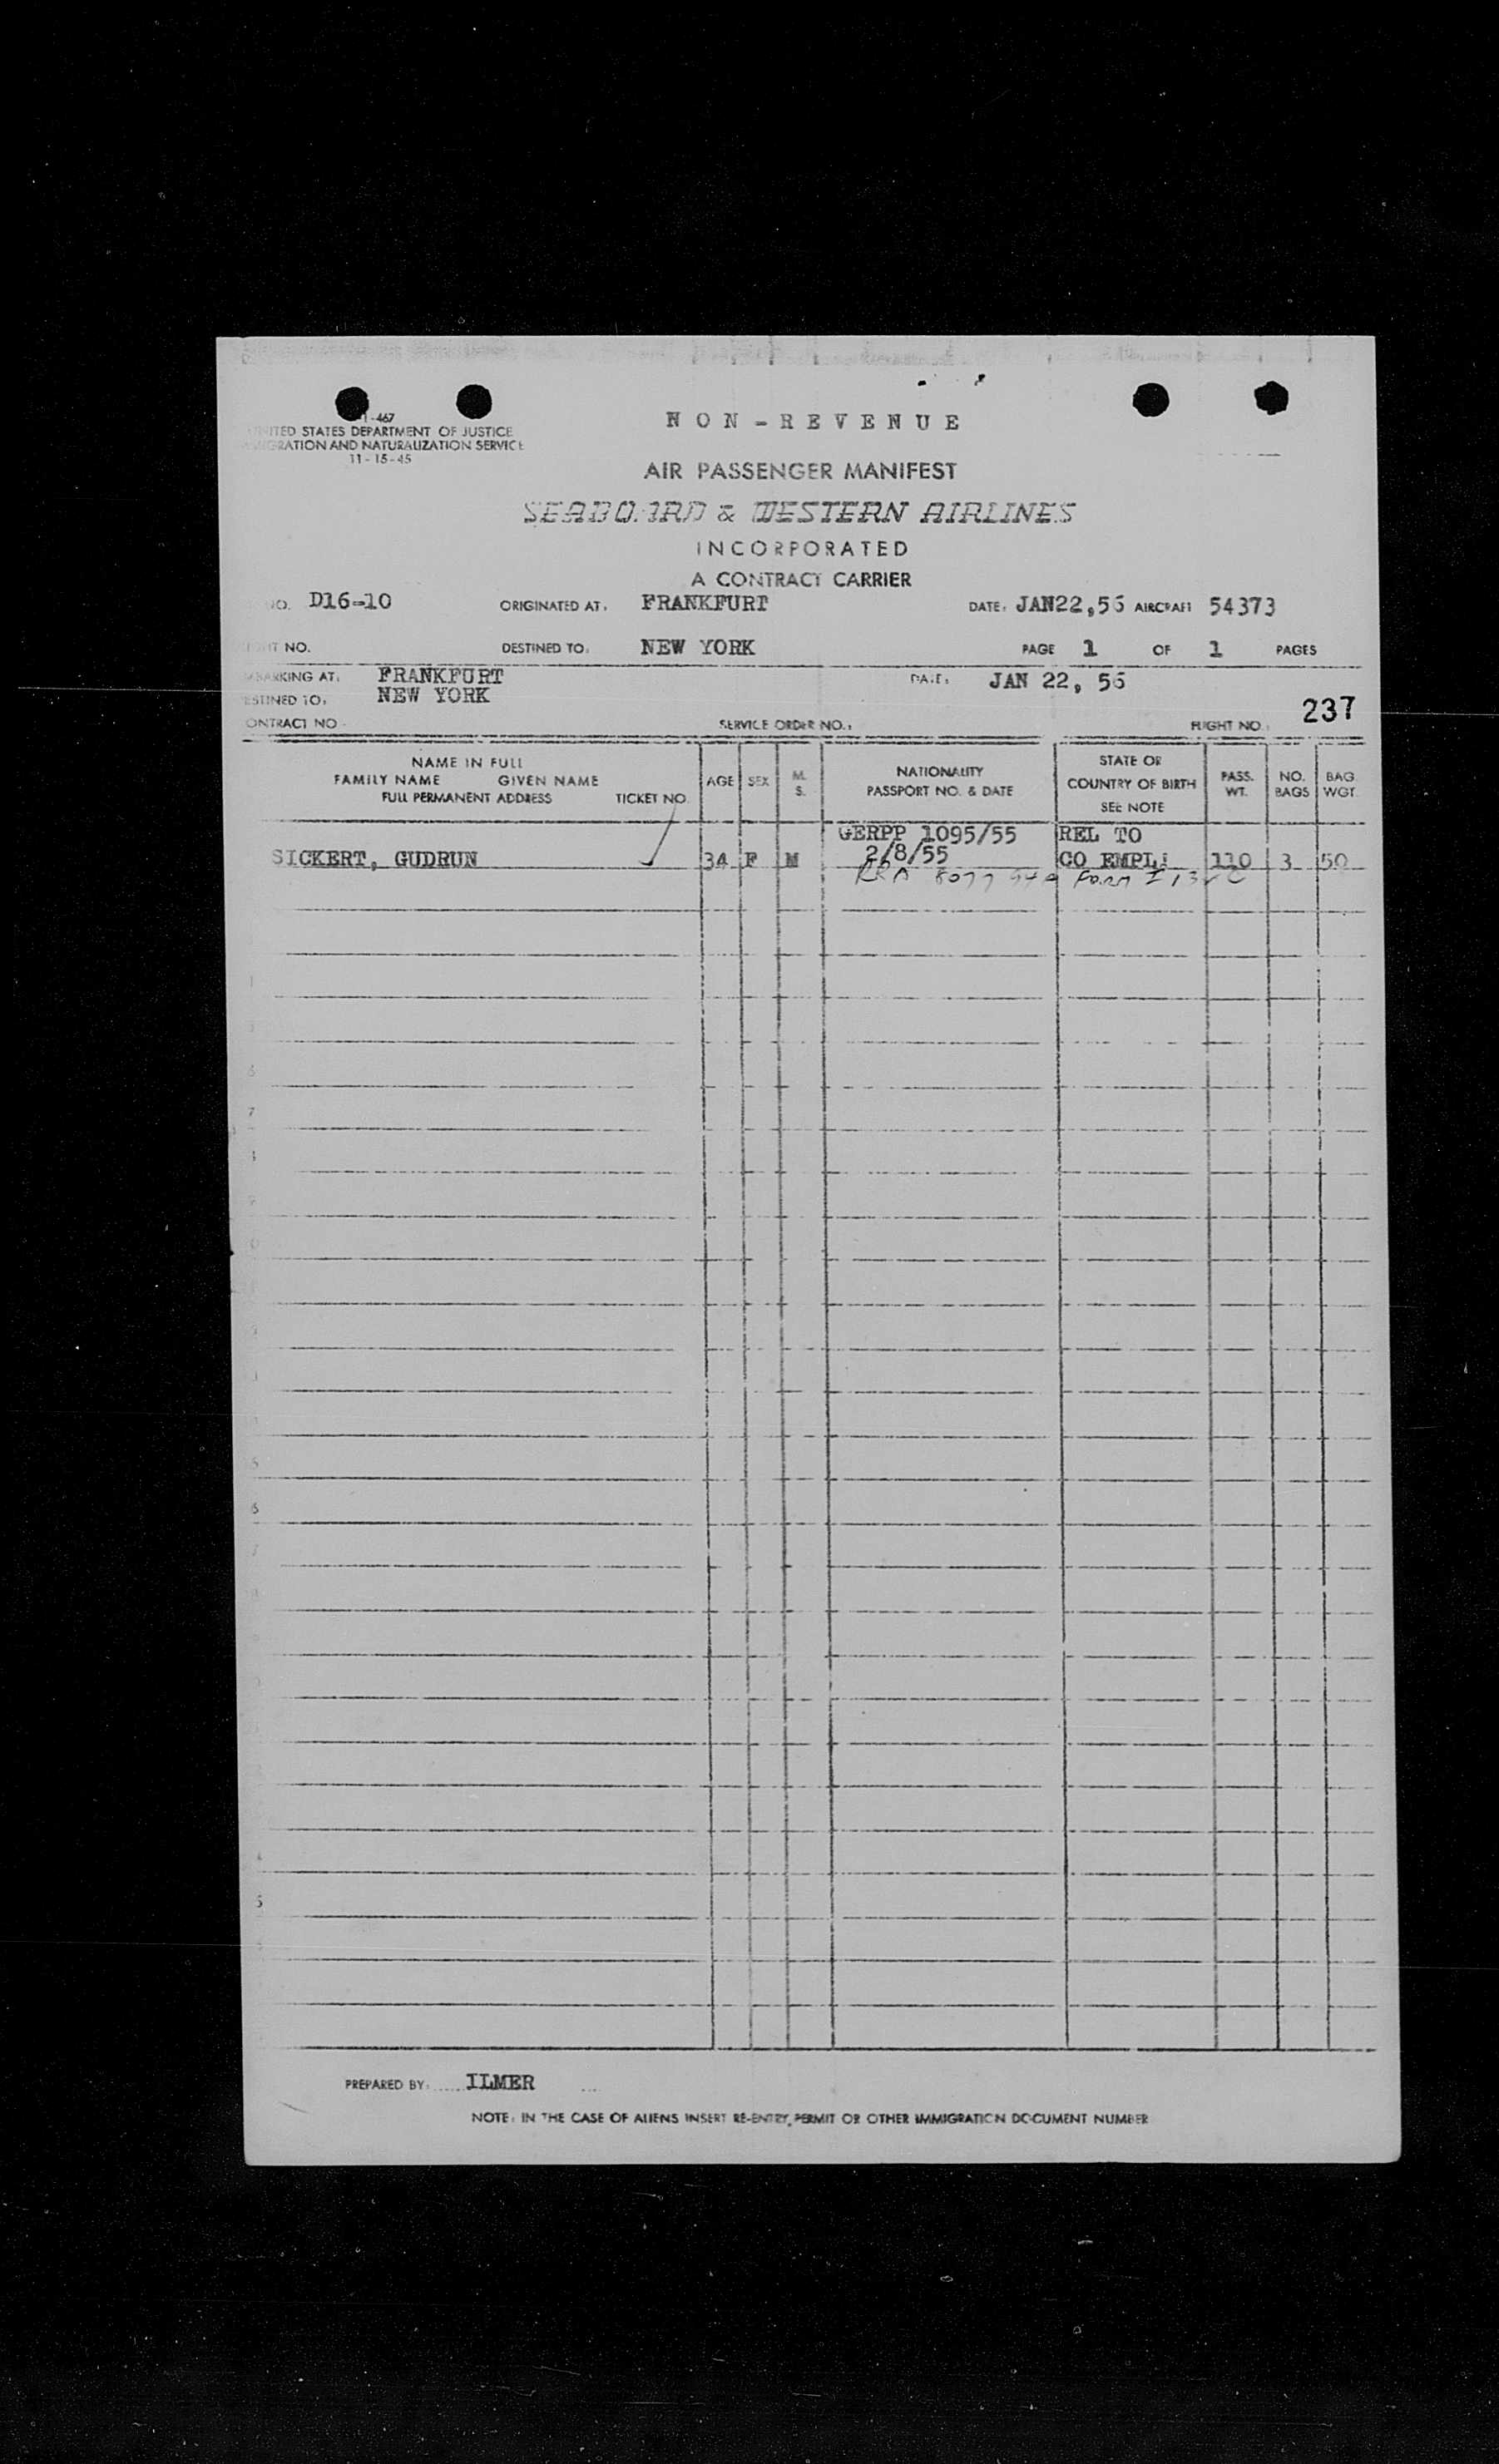 I-467
UNITED STATES DEPARTMENT OF JUSTICE
IMMIGRATION AND NATURALIZATION SERVICE
11-15-45
NON-REVENUE
AIR PASSENGER MANIFEST
SEABOARD & WESTERN AIRLINES
INCORPORATED
A CONTRACT CARRIER
NO. D16-10 ORIGINATED AT: FRANKFURT DATE: JAN22,56 AIRCRAFT 54373
NO. DESTINED TO: NEW YORK PAGE 1 OF 1 PAGES
EMBARKING AT: FRANKFURT DATE: JAN 22, 56
DESTINED TO: NEW YORK
237
CONTRACT NO. SERVICE ORDER NO.: FLIGHT NO.:
NAME IN FULL
FAMILY NAME GIVEN NAME
FULL PERMANENT ADDRESS TICKET NO.
AGE
SEX
M.
S.
NATIONALITY
PASSPORT NO. & DATE
STATE OR
COUNTRY OF BIRTH
SEE NOTE
PASS.
WT.
NO.
BAGS
BAG.
WGT.
GERPP 1095/55 REL TO
SICKERT, GUDRUN 34 F M 2/8/55 CO EMPL: 110 3 50
RRA 8077 Form
7
6
5
PREPARED BY: ILMER
NOTE: IN THE CASE OF ALIENS INSERT RE-ENTRY, PERMIT OR OTHER IMMIGRATION DOCUMENT NUMBER